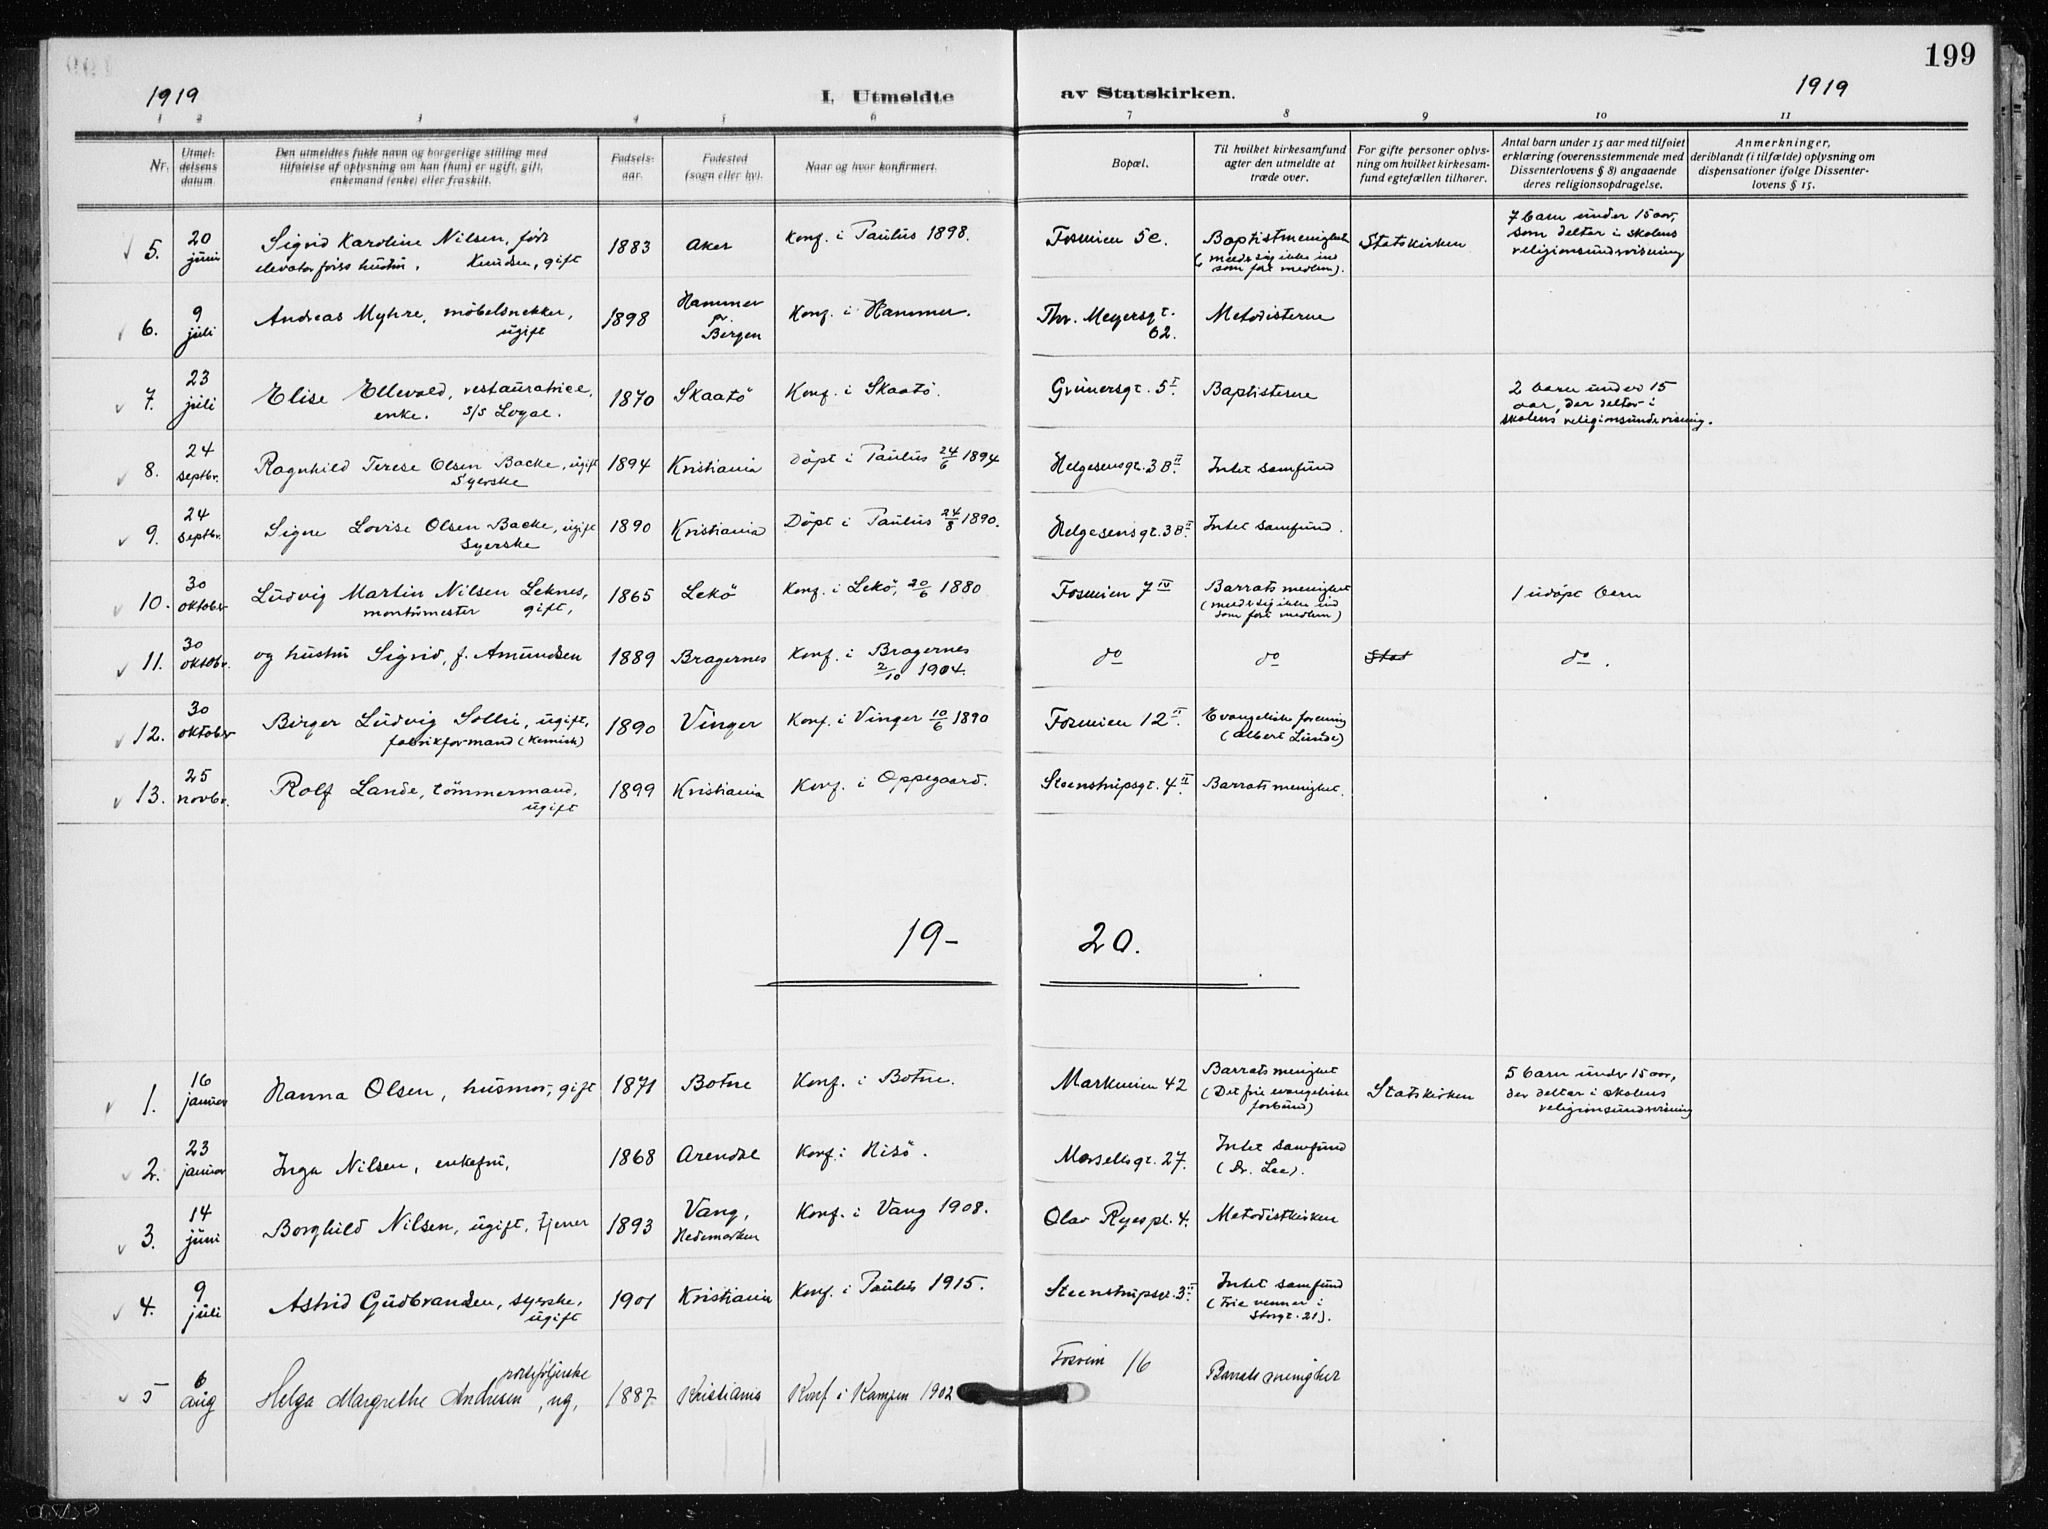 199
1919
I. Utmeldte av Statskirken.
1919
1 2 3 4 5 6 7 8 9 10 11
Nr.
Utmel-
delsens
datum.
Den utmeldtes fulde navn og borgerlige stilling med
tilføielse af oplysning om han (hun) er ugift, gift,
enkemand (enke) eller fraskilt.
Fødsels-
aar.
Fødested
(sogn eller by).
Naar og hvor konfirmert.
Bopæl.
Til hvilket kirkesamfund
agter den utmeldte at
træde over.
For gifte personer oplys-
ning om hvilket kirkesam-
fund egtefællen tilhører.
Antal barn under 15 aar med tilføiet
erklæring (overensstemmende med
Dissenterlovens § 8) angaaende
deres religionsopdragelse.
Anmerkninger,
deriblandt (i tilfælde) oplysning om
dispensationer ifølge Dissenter-
lovens § 15.
5. 20 juni
Sigrid Karoline Nilsen, født
elevatorførs hustru. Knudsen, gift
1883 Aker Konf. i Paulus 1898. Fosveien 5 c.
Baptistmenighet
(melder sig ikke ind
som fast medlem).
Statskirken
7 barn under 15 aar,
som deltar i skolens
religionsundervisning
6. 9 juli
Andreas Myhre, møbelsnekker,
ugift
1898
Hammer
pr.
Bergen
Konf. i Hammer.
Thv. Meyersgt.
62.
Metodisterne
7. 23 juli
Elise Ellevold, restauratrice,
enke. S/S Logae.
1870 Skaatö Konf. i Skaatö. Grünersgt. 5 I Baptisterne
2 barn under 15
aar, der deltar i
skolens religionsundervisning.
8. 24 septbr.
Ragnhild Terese Olsen Backe, ugift
Syerske
1894 Kristiania Döpt i Paulus 24/6 1894 Helgesensgt. 3 B II Intet samfund
9. 24 septbr.
Signe Lovise Olsen Backe, ugift
Syerske
1890 Kristiania Döpt i Paulus 24/8 1890. Helgesensgt. 3 B II. Intet samfund.
10. 30 oktober
Ludvig Martin Nilsen Leknes,
montørmester gift,
1865 Lekö Konf. i Lekö, 20/6 1880 Fosveien 7 IV
Barrats menighet
(melder sig ikke ind
som fast medlem)
1 udöpt barn
11. 30 oktobr.
og hustru Sigrid, f. Amundsen
1889 Bragernes
Konf. i Bragernes
2/10 1904.
do do Stat do.
12. 30 oktober
Birger Ludvig Sollie, ugift,
fabrikformand (kemisk)
1890 Vinger Konf. i Vinger 10/6 1890 Fosveien 12 II.
Evangeliske forening
(Albert Lunde)
13. 25 novbr.
Rolf Lande, tömmermand,
ugift
1899 Kristiania Konf. i Oppegaard. Steenstrupsgt. 4 II. Barrats menighet.
19- 20.
1. 16 januar
Hanna Olsen, husmor, gift 1871 Botne Konf. i Botne. Markveien 42
Barrats menighet
(Det frie evangeliske
forbund)
Statskirken
5 barn under 15 aar,
der deltar i skolens
religionsundervisning
2. 23 januar
Inga Nilsen, enkefru, 1868 Arendal Konf. i Hisö. Marsellesgt. 27.
Intet samfund
(Dr. Lee).
3. 14 juni
Borghild Nilsen, ugift, tjener 1893
Vang,
Hedemarken
Konf. i Vang 1908. Olav Ryes pl. 4. Metodistkirken
4. 9 juli
Astrid Gudbrandsen, syerske,
ugift
1901 Kristiania Konf. i Paulus 1915. Steenstrupsgt. 3 II.
Intet samfund
(Frie venner i
Storgt. 21).
5 6 aug
Helga Margrethe Andresen, ug,
1887 Kristiania Konf i Kampen 1902 Fosvein 16 Barrats menighet